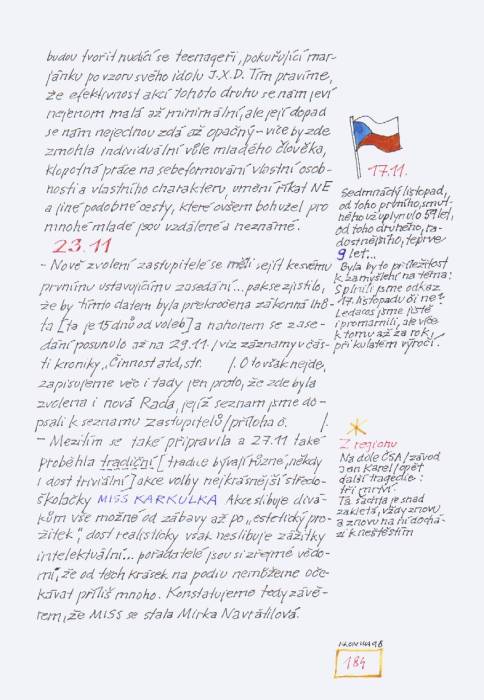 budou tvořit nudící se teenageři, pokuřující mar-
jánku po vzoru svého idolu J.X.D. Tím pravíme,
že efektivnost akcí tohoto druhu se nám jeví
nejenom malá až minimální, ale její dopad
se nám nejednou zdá až opačný - více by zde
zmohla individuální vůle mladého člověka,
klopotná práce na sebeformování vlastní osob-
nosti a vlastního charakteru, umění říkat NE
a jiné podobné cesty, které ovšem bohužel pro
mnohé mladé jsou vzdálené a neznámé.
23.11
- Nově zvolení zastupitelé se měli sejít ke svému
prvnímu ustavujícímu zasedání... pak se zjistilo,
že by tímto datem byla překročena zákonná lhů-
ta [ta je 15 dnů od voleb] a nakonem se zase-
dání posunulo až na 29.11. / viz záznamy v čás-
ti kroniky „Činnost atd, str. /. O to však nejde,
zapisujeme věc i tady jen proto, že zde byla
zvolena i nová Rada, jejíž seznam jsme do-
psali k seznamu zastupitelů / příloha č. /.
- Mezitím se také připravila a 27.11 také
proběhla tradiční [tradice bývají různé, někdy
i dost triviální] akce volby nejkrásnější středo-
školačky MISS KARKULKA Akce slibuje divá-
kům vše možné od zábavy až po „estetický pro-
žitek“, dost realisticky však neslibuje zážitky
intelektuální... pořadatelé jsou si zřejmě vědo-
mi, že od těch krásek na podiu nemůžeme oče-
kávat příliš mnoho. Konstatujeme tedy závě-
rem, že MISS se stala Mirka Navrátilová.
17.11.
Sedmnáctý listopad,
od toho prvního, smut-
ného už uplynulo 59 let,
od toho druhého, ra-
dostnějšího, teprve
9 let...
Byla by to příležitost
k zamyšlení na téma:
Splnili jsme odkaz
17. listopadu či ne?
Ledacos jsme jistě
i promarnili, ale více
k tomu až za rok,
při kulatém výročí.
Z regionu
Na dole ČSA / závod
Jan Karel / opět
další tragedie:
tři mrtví.
Tá šachta je snad
zakletá, vždy znovu
a znovu na ní dochá-
zí k neštěstím
184